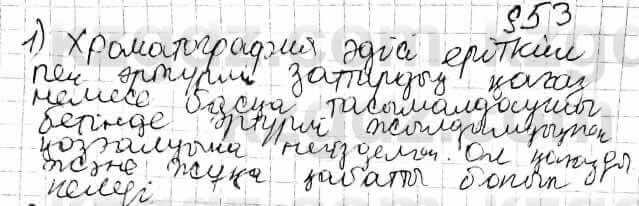 §53
1) Хроматография әдісі еріткіш
пен әртүрлі заттардың қағаз
немесе басқа тасымалдаушы
бетінде әртүрлі жылдамдықпен
қозғалуына негізделген. Ол қағазды
және жұқа қабатты болып
келеді